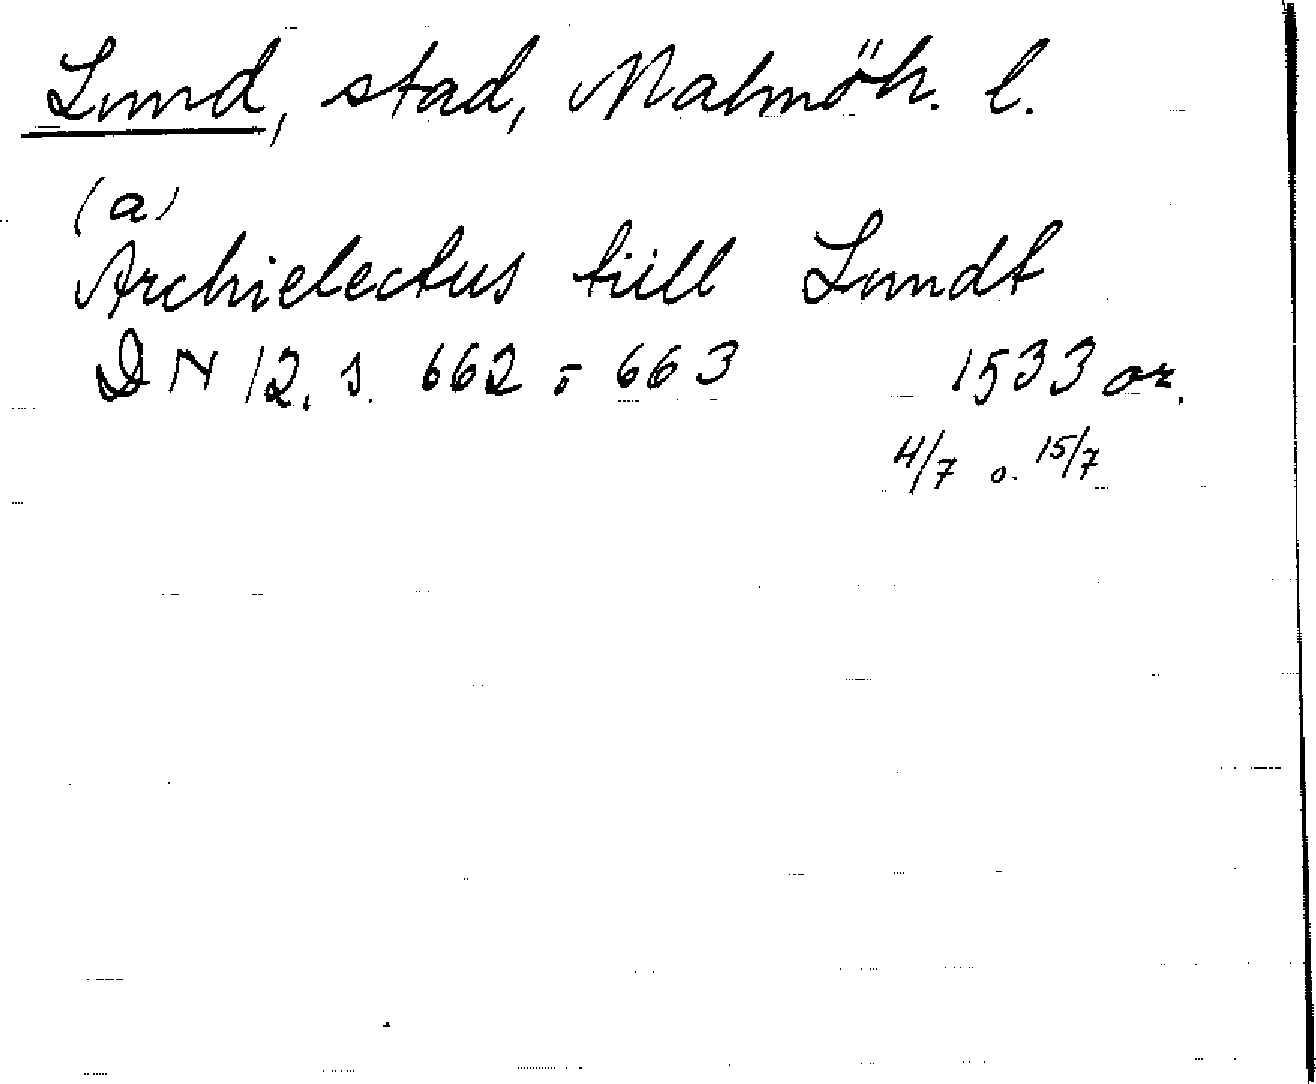 Lund, stad, Malmöh. l.
(a)
Archielectus tiill Lundt
DN 12, s. 662-663 1533 or.
4/7 o. 15/7